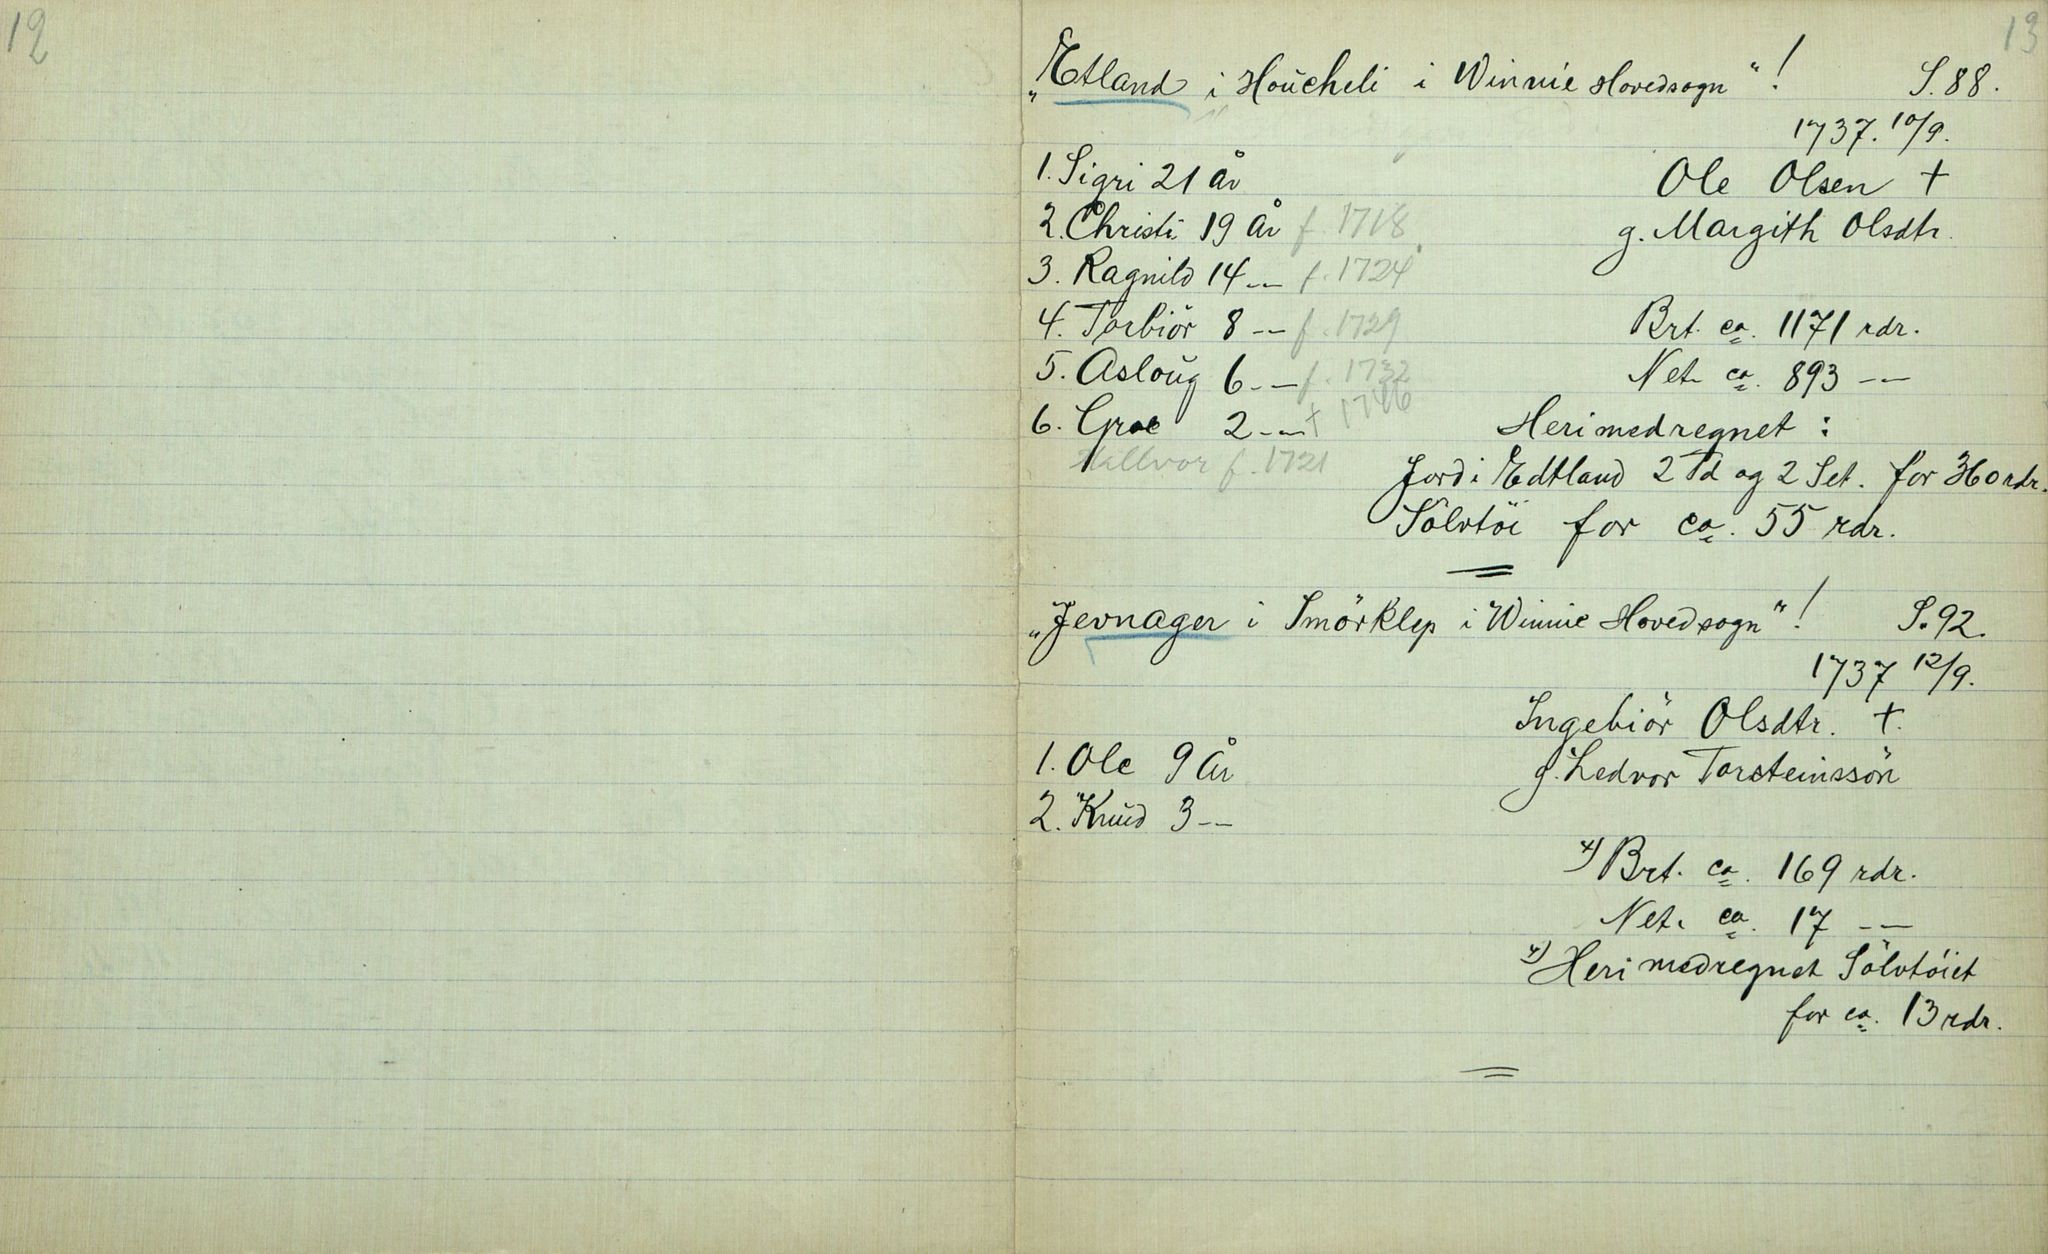 12
13
„Etland i Houcheli i Winnie Hovedsogn"! S. 88.
1737. 10/9.
1. Sigri 21 År Ole Olsen †
2. Christi 19 År f. 1718 g. Margith Olsdtr.
3. Ragnild 14 -- f. 1724
4. Torbiör 8 -- f. 1729 Brt. ca. 1171 rdr.
5. Asloug 6 -- f. 1732 Net. ca. 893 --
6. Groe 2 -- † 1746 Heri medregnet:
Hallvor f. 1721 Jord i Edtland 2 Td og 2 Set. for 360 rdr.
Sölvtöi for ca. 55 rdr.
„Jevnager i Smörklep i Winnie Hovedsogn"! S. 92.
1737 12/9.
Ingebiör Olsdtr. †.
1. Ole 9 År g. Ledvor Torsteinssön
2. Knud 3 --
x) Brt. ca. 169 rdr.
Net. ca. 17 --
x) Heri medregnet Sölvtöiet
for ca. 13 rdr.